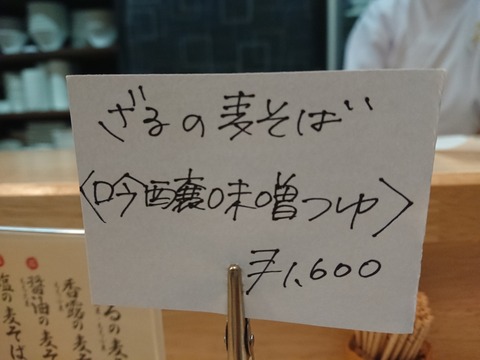 ざるの麦そば
〈吟醸味噌つゆ〉
¥1,600
るの麦
香露の麦そ
醤油の麦そ
塩の麦そば